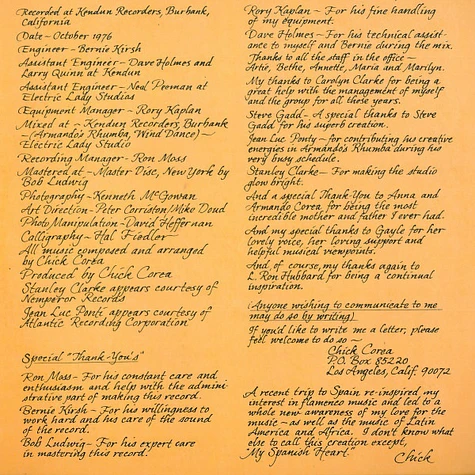 Recorded at Kendun Recorders, Burbank,
California
Date - October 1976
Engineer - Bernie Kirsh
Assistant Engineer - Dave Holmes and
Larry Quinn at Kendun
Assistant Engineer - Neal Peeman at
Electric Lady Studios
Equipment Manager - Rory Kaplan
Mixed at - Kendun Recorders, Burbank
- (Armando's Rhumba, Wind Dance) -
Electric Lady Studio
Recording Manager - Ron Moss
Mastered at - Master Disc, New York by
Bob Ludwig
Photography - Kenneth McGowan
Art Direction - Peter Corriston/Mike Doud
Photo Manipulation - David Heffernan
Calligraphy - Hal Fiedler
All music composed and arranged
by Chick Corea
Produced by Chick Corea
Stanley Clarke appears courtesy of
Nemperor Records
Jean Luc Ponti appears courtesy of
Atlantic Recording Corporation
Special "Thank-You's"
Ron Moss - For his constant care and
enthusiasm and help with the admini-
strative part of making this record.
Bernie Kirsh - For his willingness to
work hard and his care of the sound
of the record.
Bob Ludwig - For his expert care
in mastering this record.
Rory Kaplan - For his fine handling
of my equipment.
Dave Holmes - For his technical assist-
ance to myself and Bernie during the mix.
Thanks to all the staff in the office -
Arte, Bethe, Annette, Maria and Marilyn.
My thanks to Carolyn Clarke for being a
great help with the management of myself
and the group for all these years.
Steve Gadd - A special thanks to Steve
Gadd for his superb creation.
Jean Luc Ponty - for contributing his creative
energies in Armando's Rhumba during his
very busy schedule.
Stanley Clarke - For making the studio
glow bright.
And a special Thank-You to Anna and
Armando Corea for being the most
incredible mother and father I ever had.
And my special thanks to Gayle for her
lovely voice, her loving support and
helpful musical viewpoints.
And of course, my thanks again to
L. Ron Hubbard for being a continual
inspiration.
(Anyone wishing to communicate to me
may do so by writing)
If you'd like to write me a letter, please
feel welcome to do so -
Chick Corea
P.O. Box 85220
Los Angeles, Calif. 90072
A recent trip to Spain re-inspired my
interest in flamenco music and led to a
whole new awareness of my love for the
music - as well as the music of Latin
America and Africa. I don't know what
else to call this creation except,
"My Spanish Heart."
Chick